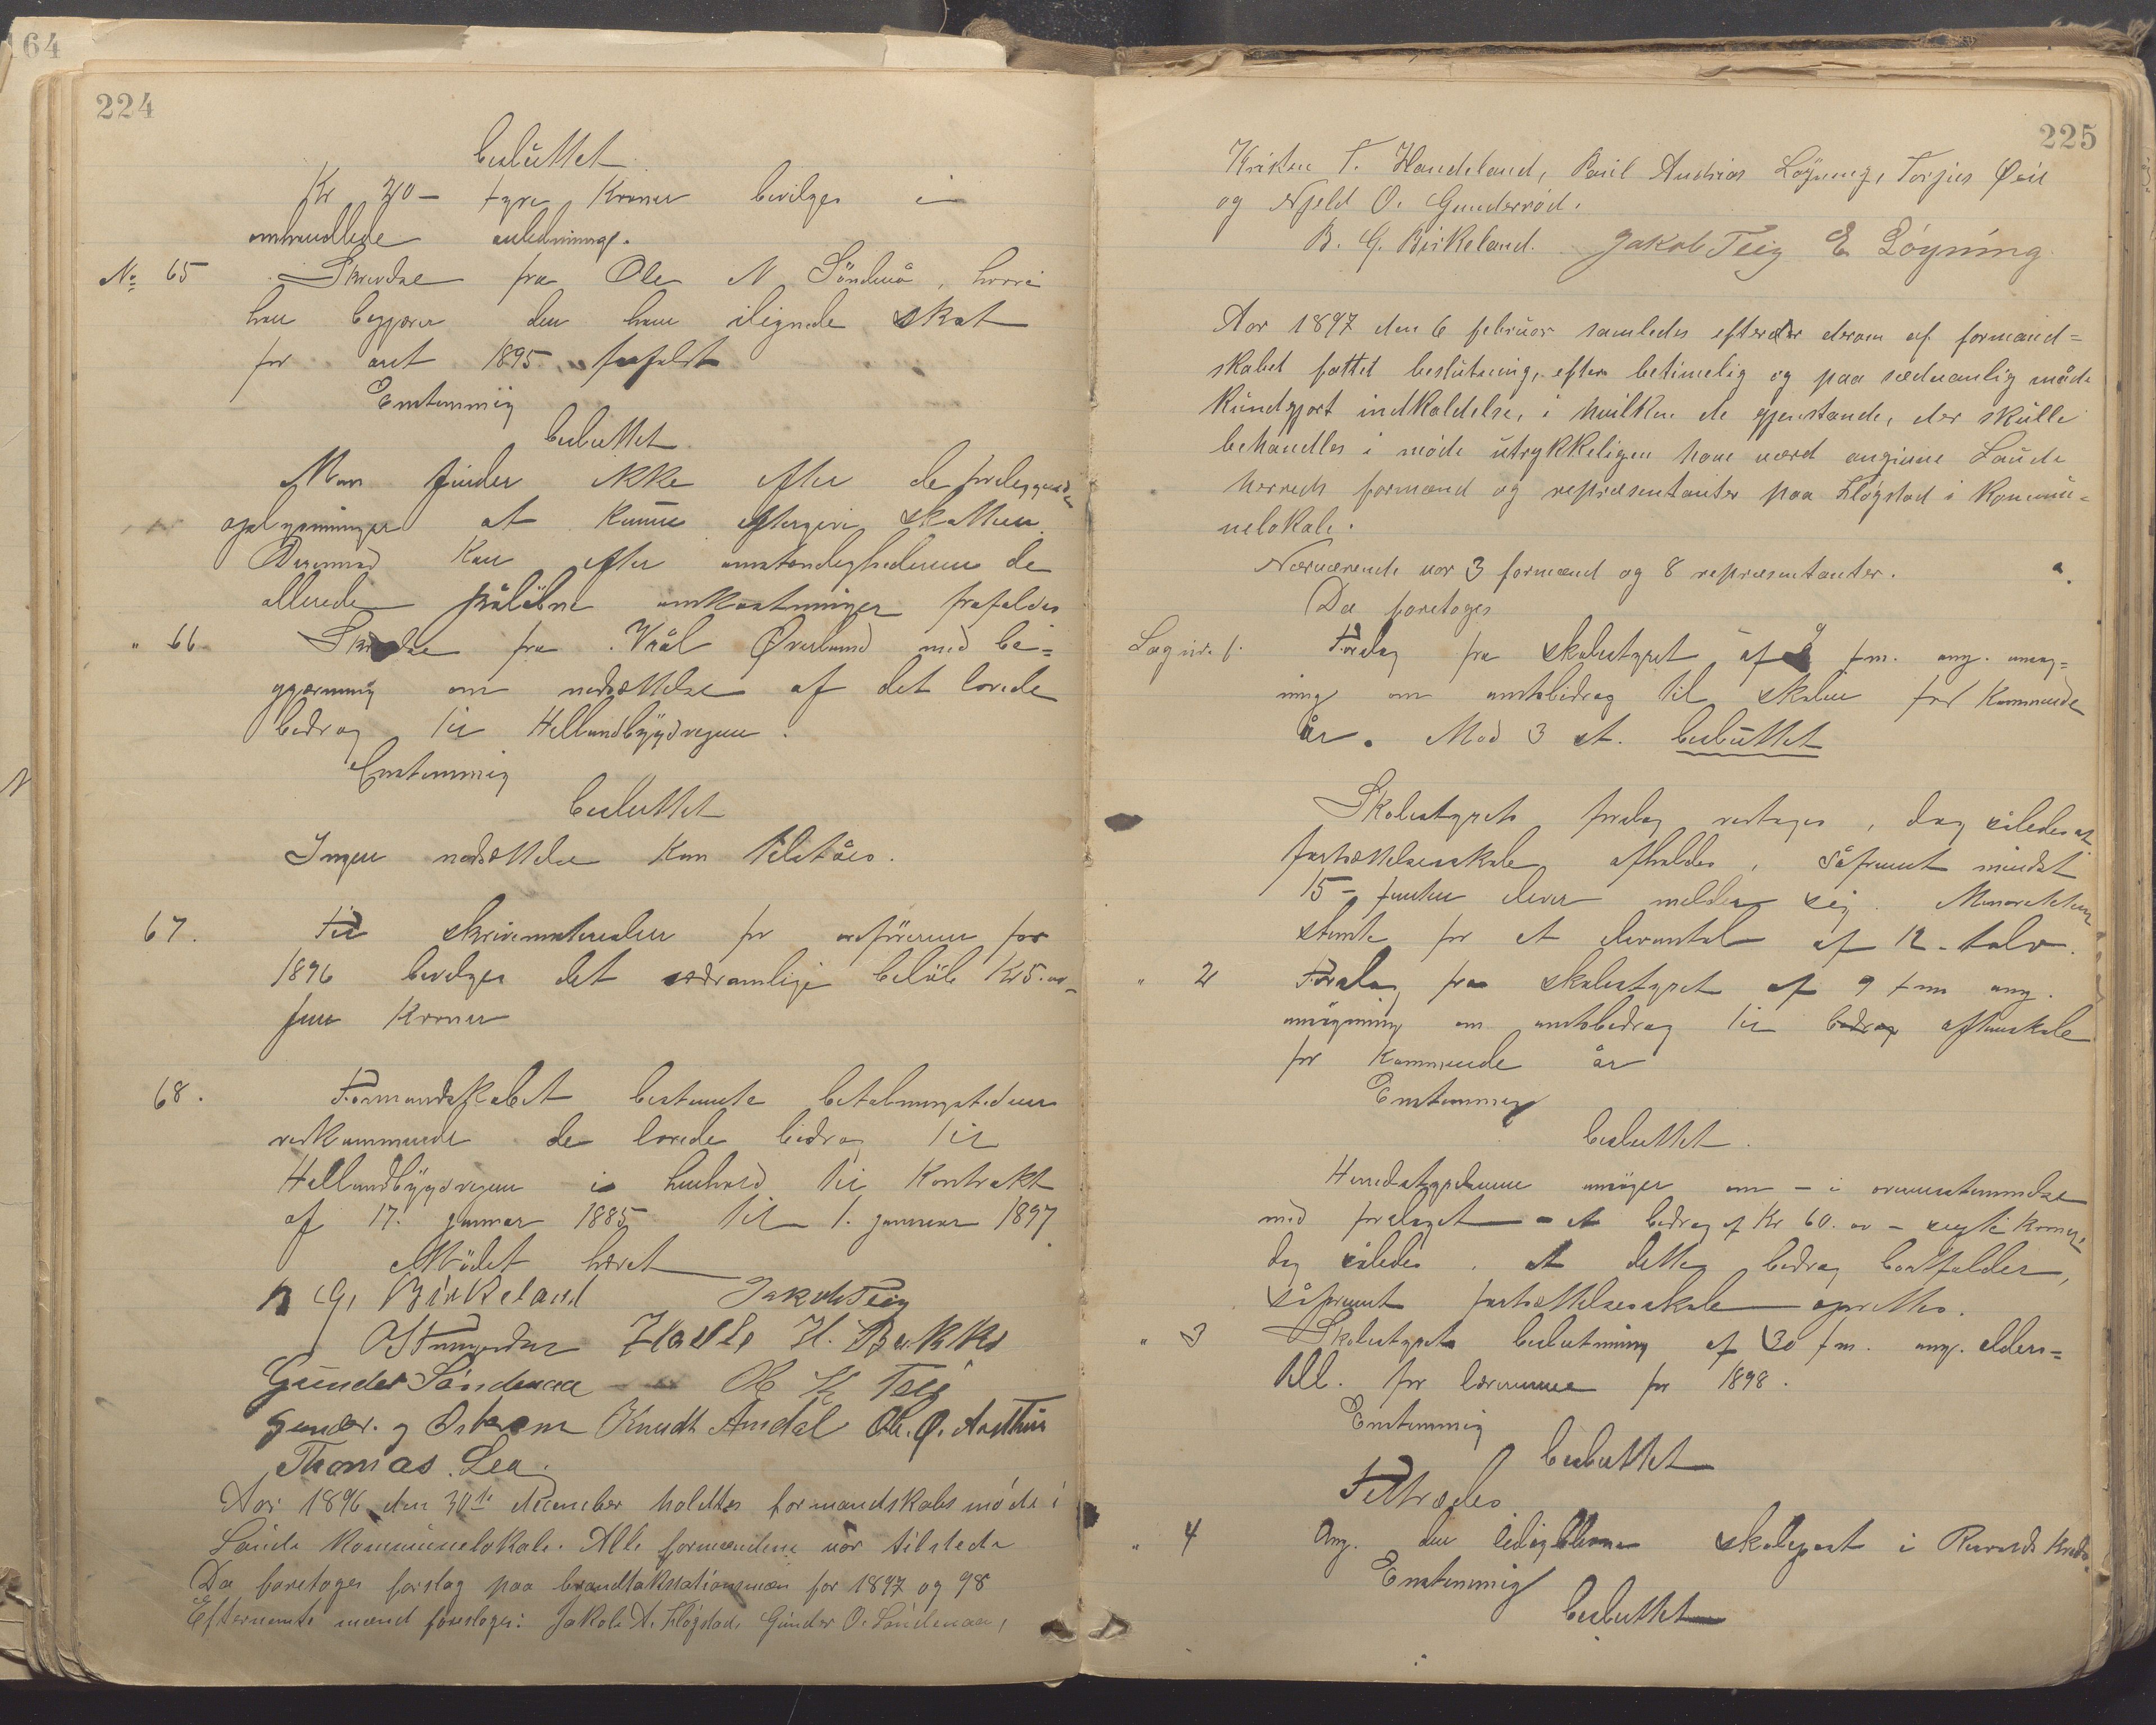 164
224
besluttet
Kr 20 – tyve Kroner bevilges i
omhandlede anledning.
No 65 Skrivelse fra Ole N Söndenå, hvori
han begjærer den ham ilignede skat
for aaret 1895 frafaldt
Enstemmig
besluttet
Man finder ikke efter de foreliggende
oplysninger at kunne eftergive skatten.
Derimod kan efter omstændighederne de
allerede påløbne omkostninger frafaldes
" 66 Skrivelse fra Vrål Øverland med be=
gjærning om nedsættelse af det lovede
bidrag til Hellandbygdvegen.
Enstemmig
besluttet
Ingen nedsættelse kan tilståes.
67. Til skrivematerialier for ordföreren for
1896 bevilges det sædvanlige belöb Kr 5.oo
fem Kroner
68. Formandskabet bestemte betalingstiden
vedkommende de lovede bidrag til
Hellandbygdvegen i henhold til Kontrakt
af 17. januar 1885 til 1. januar 1897.
Mödet hævet
B. G. Birkeland Jakob Teig
Halle H. Bakka
Gunder Söndenaa Ole K Teig
Gunder. G Østrem Knudt Amdal Ol. O.
Thomas Lea.
Aar 1896 den 30te december holdtes formandskabsmöde i
Sauda Kommunelokale. Alle formændene var tilstede
Da foretoges forslag paa brandtakstationsmæn for 1897 og 98
Efternevnte mænd foresloges: Jakob A. Fløgstad, Gunder O. Söndenaa,
225
Kristen T. Handeland, Paul Andrias Löyning, Torjus Øen
og Njeld O. Gunderröd.
B. G. Birkeland. Jakob Teig E Löyning
Aar 1897 den 6 februar samledes efter derom af formand=
skabet fattet beslutning, efter betimelig og paa sædvanlig måde
kundgjort indkaldelse, i hvilken de gjenstande, der skulle
behandles i möde utrykkeligen have værd angivne Saude
herreds formænd og repræsentanter paa Flögstad i kommu=
nelokale.
Nærværende var 3 formænd og 8 repræsentanter.
Da foretoges
Sag nr. 1. Forslag fra skolestyret af 9 f.m. ang. ansøg=
ning om amtsbidrag til skolen for kommende
år. Mod 3 st. besluttet
Skolestyrets forslag vedtages, dog således at
fortsættelsesskole afholdes, såfremt mindst
15 – femten elever melder sig. Minoriteten
stemte for et elevantal af 12 – tolv.
" 2 Forslag fra skolestyret af 9 f.m ang.
ansøgning om amtsbidrag til bidrag aftenskole
for kommende år
Enstemmig
besluttet.
Herredsstyret ansøger om – i overensstemmelse
med forslaget – et bidrag af Kr 60.oo – sexti kroner,
dog således, at dette bidrag bortfalder,
såfremt fortsættelsesskole oprettes.
" 3 Skolestyrets beslutning af 30 f.m. ang. alders=
till. for lærerne for 1898.
Enstemmig
besluttet
Tiltrædes
" 4 Ang. den ledigblevne skolepost i Kreds.
Enstemmig
besluttet